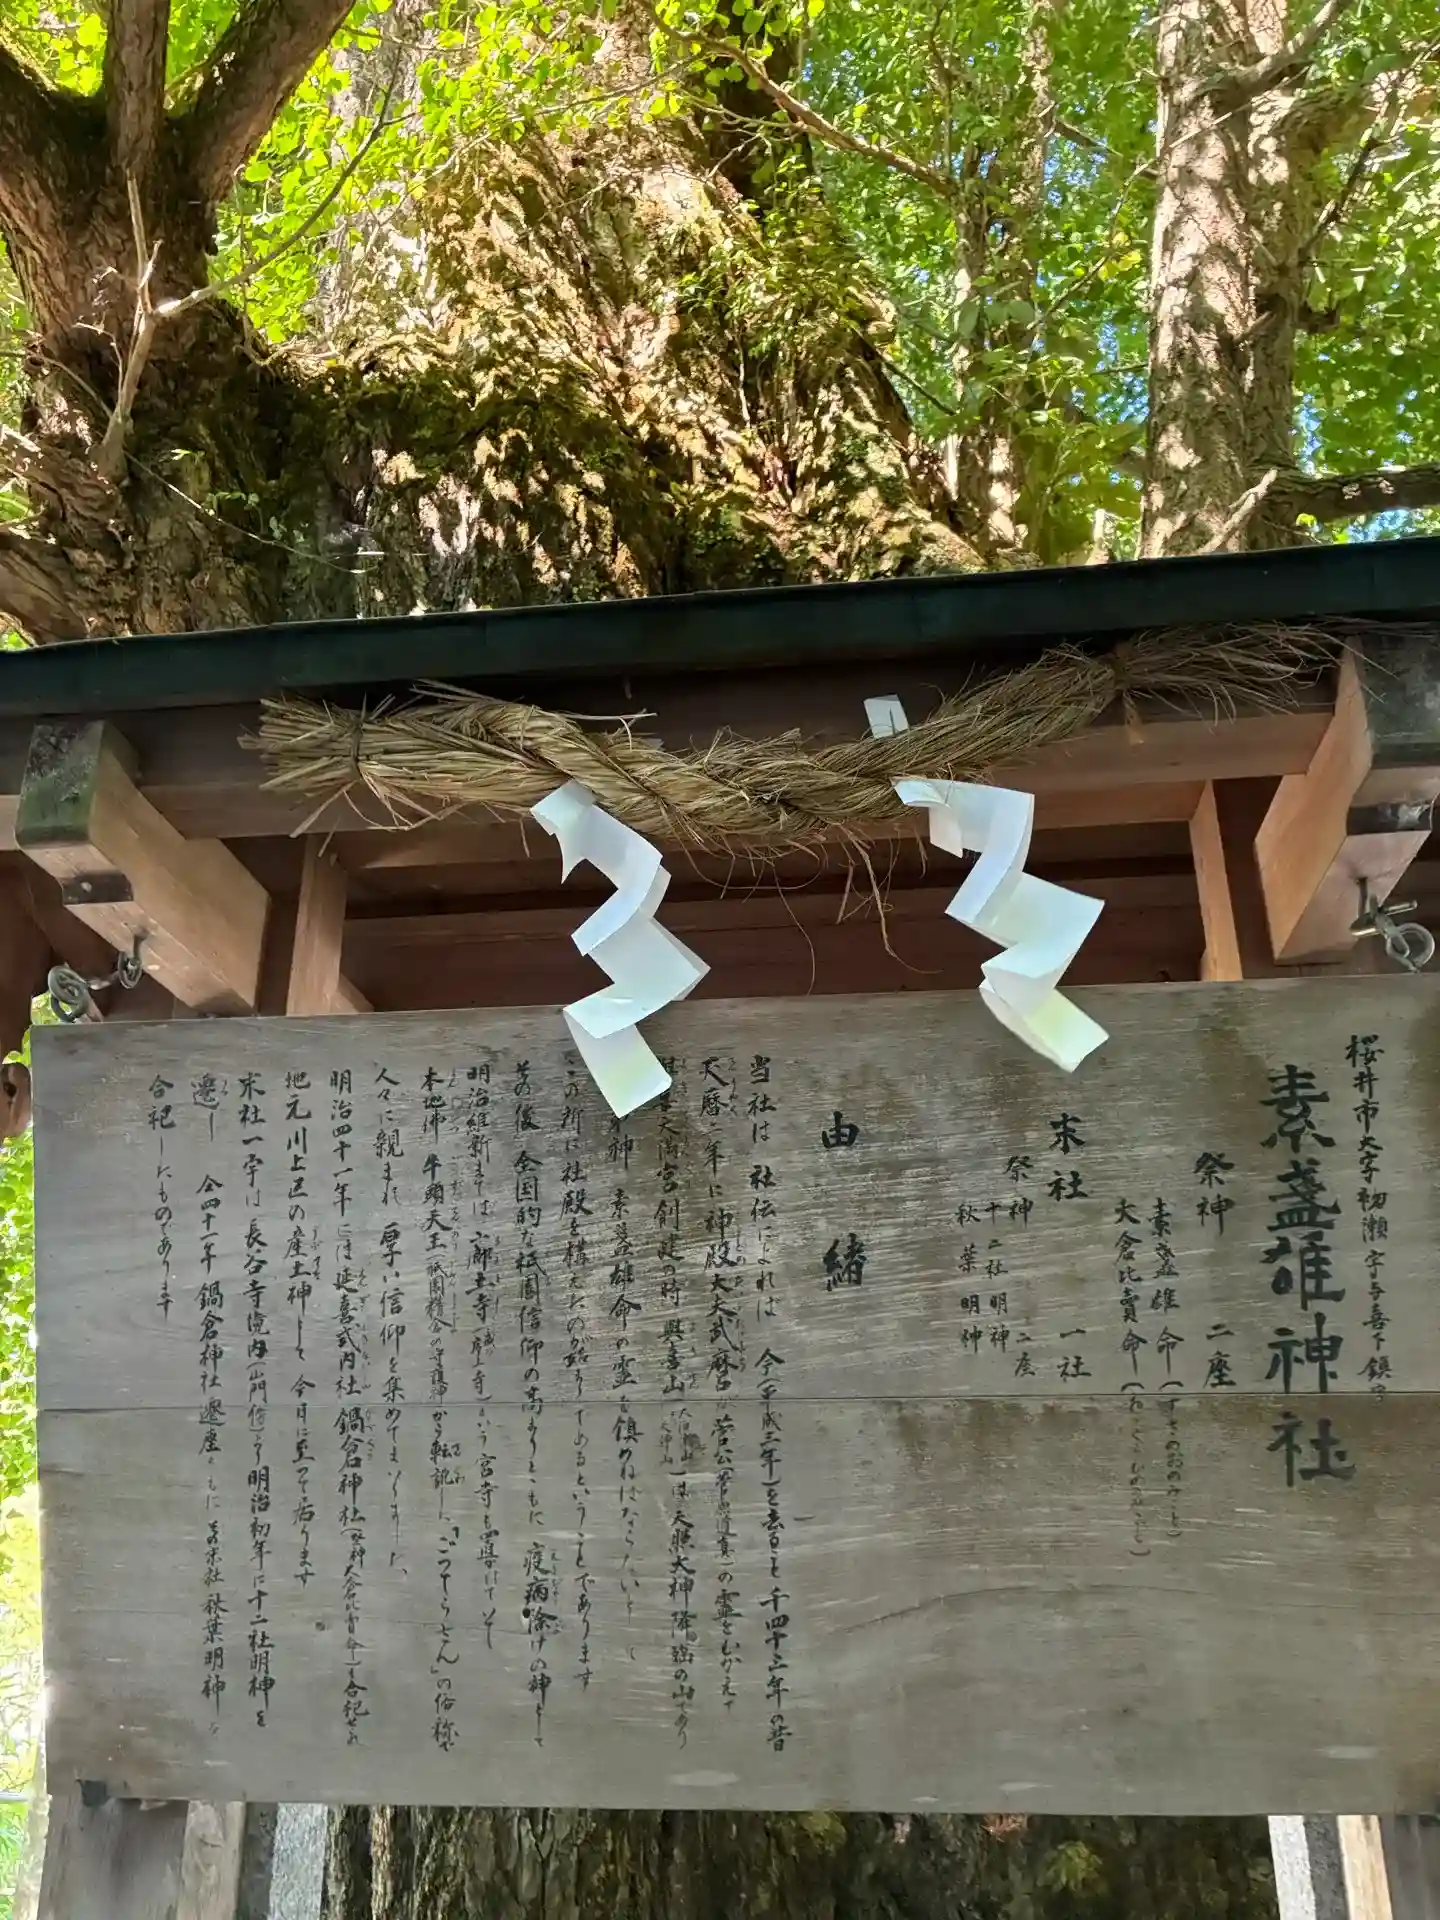 桜井市大字初瀬字与喜下鎮守
素盞雄神社
祭神 二座
素盞雄命(すさのおのみこと)
大倉比賣命(おおくらひめのみこと)
末社 一社
祭神 二座
十二社明神
秋葉明神
由緒
当社は 社伝によれは 今(平成三年)を去ること千四十三年の昔
天暦二年に神殿大夫武麿が菅公(菅原道真)の霊をむかえて
天満宮創建の時 與喜山 は天照大神降臨の山であり
神 素盞雄命の霊も鎮めねばならないと
この所に社殿を構えたのが始まりであるということであります
その後 全国的な祇園信仰の高まりとともに 疫病除けの神として
明治維新までは 寺 という宮寺も置けて
本地佛 牛頭天王 祇園精舎の守護神 から転訛し「ごってらさん」の俗称で
人々に親まれ 厚い信仰を集めてまいりました、
明治四十一年には延喜式内社鍋倉神社(祭神大倉比賣命)を合祀せられ
地元川上区の産土神として今日に至って居ります
末社一宇は長谷寺境内(山門傍)より明治初年に十二社明神を
遷し 仝四十一年鍋倉神社遷座ともに その末社秋葉明神を
合祀したものであります